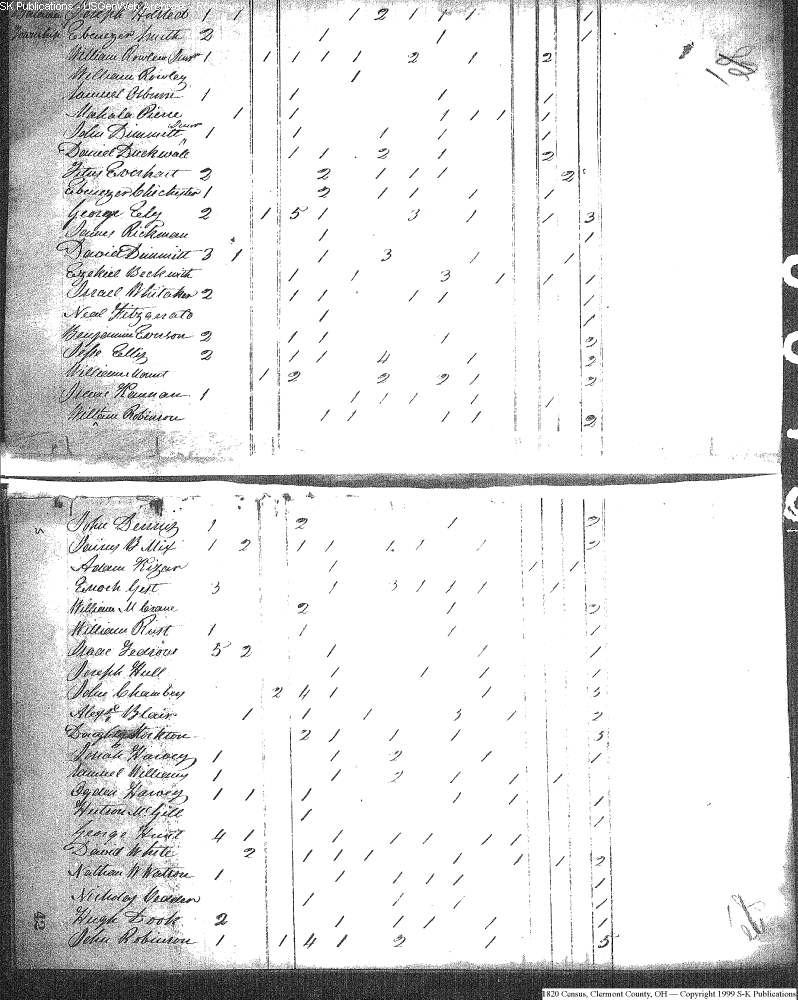 SK Publications - USGenWeb Archives
Joseph 1 1 1 2 1 1 1 1
Township Ebenezer Smith 2 1 1 1
William Rowley 1 1 1 1 1 2 1 2
William Rowley 1
Samuel Osburn 1 1 1 1
Mahala Pierce 1 1 1 1 1 1
John Dimmitt Junr 1 1 1 1 1
Daniel Buckwalt 1 1 2 1 2
Titus Everhart 2 2 1 1 1 2
Ebenezer Chichester 1 2 1 1 1 1
George Ely 2 1 5 1 3 1 1 3
James Rickman 1 1
David Dimmitt 3 1 1 3 1 1
Ezekiel Beckwith 1 1 3 1 1 1
Israel Whitaker 2 1 1 1 1 1
Neal Fitzgerald 1 1
Benjamin Everson 2 1 1 1 2
Jesse Ellis 2 1 1 4 1 2
William Mount 1 2 2 2 1 2
Hannan 1 1 1 1 1 1
William Robinson 1 1 1 1 2
John Dennis 1 2 1 2
B Mix 1 2 1 1 1 1 1 2
Adam Kizar 1 1 1
Enoch Gest 3 1 3 1 1 1 1
William McCrane 2 1 2
William Rust 1 1 1 1
Isaac 5 2 1 1 1
Joseph Hull 1 1 1 1
John Chambers 2 4 1 1 3
Alexr Blair 1 1 1 3 1 2
Doughty Stockton 2 1 1 1 3
Josiah Harvey 1 1 2 1 1
Samuel Williams 1 1 2 1 1 1
Ogden Harvey 1 1 1 1 1 1
Hutson McGill 1 1
George Hunt 4 1 1 1 1 1 1 1
David White 2 1 1 1 1 1 1 2
Nathan W Watson 1 1 1 1 1 1
Nicholas 1 1 1 1
Hugh Dook 2 1 1 1 1 1
John Robinson 1 1 4 1 2 1 5
42
1820 Census, Clermont County, OH — Copyright 1999 S-K Publications